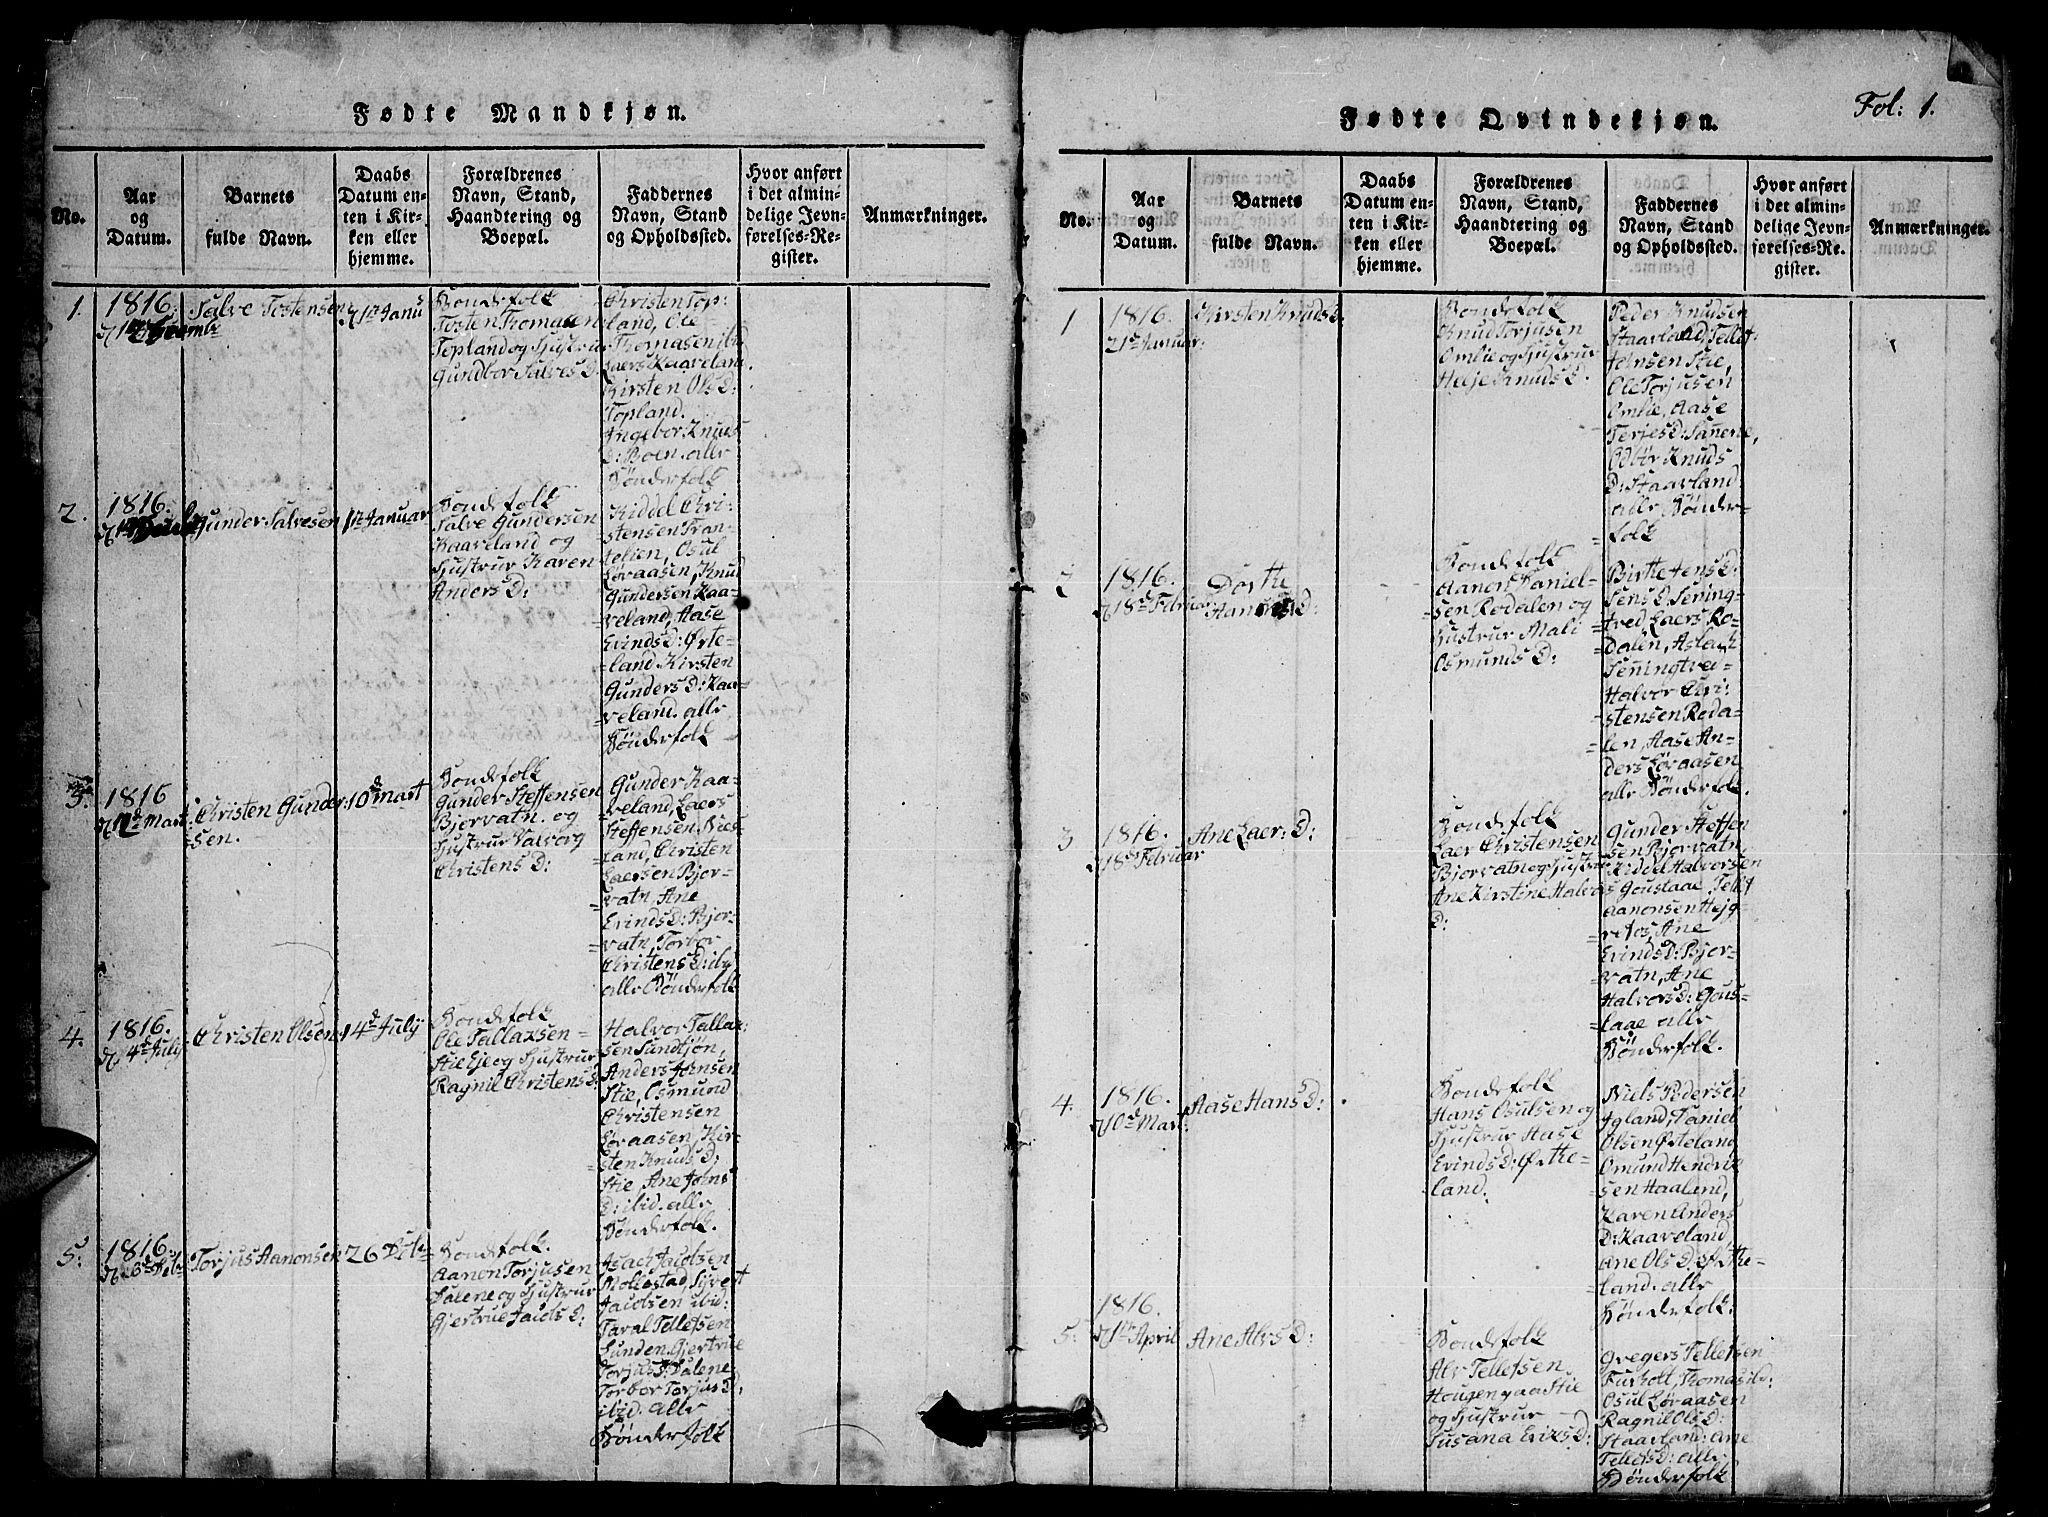 Fødte Mandkjøn.
No.
Aar
og
Datum.
Barnets
fulde Navn.
Daabs
Datum en-
ten i Kir-
ken eller
hjemme.
Forældrenes
Navn, Stand,
Haandtering og
Boepæl.
Faddernes
Navn, Stand
og Opholdssted.
Hvor anført
i det almin-
delige Jevn-
førelses-Re-
gister.
Anmærkninger.
1.
1816.
Salve Tostensen
1ste Janu
Bondefolk
Tosten Thomasen
Topland og Hustrue
Gundbor Salves D:
Christen Top-
land, Ole
Thomasen ibid
Laers Kaareland
Kirsten Ols D:
Topland.
Ingebor Knuds
D: Boen. alle
Bønderfolk
2.
1816.
Gunder Salvesen
1ste Januar
Bondefolk
Salve Gundersen
Kaareland og
Hustrue Karen
Anders D:
Kiddel Chri-
stensen Tran-
telien, Osul
Løraasen, Knud
Gundersen Kaa-
reland, Aase
Evinds D: Ørte-
land. Kirsten
Gunders D: Kaa-
reland. alle
Bønderfolk
3.
1816
Mart
Christen Gunder-
sen.
10de Mart
Bondefolk
Gunder Steffensen
Bjorvatn. og
Hustrue Valborg
Christens D:
Gunder Kaa-
reland, Laers
Steffensen Nies-
land, Christen
Laersen Bjor-
vatn, Ane
Evinds D: Bjor-
vatn, Torbor
Christens D: iby
alle Bønderfolk
4.
1816.
d. 4de July
Christen Olsen
14de July
Bondefolk
Ole Tallaksen
Stie Eje og Hustrue
Ragnil Christens D:
Halvor Tallax-
sen Sundtjøn,
Anders Jensen
Stie, Osmund
Christensen
Løraasen, Kir-
sten Knuds D:
Stie, Ane Jens
D: ibid. alle
Bønderfolk.
5.
1816.
Torjus Aanonsen
26 Dete
Bondefolk.
Aanon Torjusen
Dalene og Hustrue
Gjertrue Jacobs D:
Isach Jacobsen
Mollestad, Sivert
Jacobsen ibid:
Taral Tellefsen
Lunden, Gjertrue
Torjus D: Dalene
Torbor Torjus D:
ibid. alle
Bønderfolk
Fødte Qvindekjøn.
Fol: 1.
No.
Aar
og
Datum.
Barnets
fulde Navn.
Daabs
Datum en-
ten i Kir-
ken eller
hjemme.
Forældrenes
Navn, Stand,
Haandtering og
Boepæl.
Faddernes
Navn, Stand
og Opholdssted.
Hvor anført
i det almin-
delige Jevn-
førelses-Re-
gister.
Anmærkninger.
1
1816.
21de Januar
Kirsten Knuds D:
Bondefolk
Knud Torjusen
Omlie og Hustrue
Helje Knuds D.
Peder Knudsen
Staarland, Tellef
Jensen Stie,
Ole Torjusen
Omlie, Aase
Terjes D: Sannene,
Odbør Knuds
D: Staarland
alle Bønder-
folk
2
1816.
d. 18de Februar
Dorthe
Aanons D:
Bondefolk
Aanon Daniel-
sen Rodalen og
Hustrue Mali
Osmunds D:
Birthe Jens D:
Sening-
tved Laers Ro-
dalen, Aslach
Senningtvei
Halvor Chri-
stensen Roda-
len, Aase An-
ders Løraasen
alle Bønderfolk.
3
1816.
18de Februar
Ane Laers D:
Bondefolk
Laer Christensen
Bjorvatn og Hustrue
Ane Kirstine Halvors
D:
Gunder Steffen
sen Bjorvatn,
Kiddel Halvorsen
Goustaae, Tellef
Aanonsen Hejg-
retos, Ane
Evinds D: Bjor-
vatn, Ane
Halvors D: Gous-
taae alle
Bønderfolk.
4.
1816.
10de Mart
Aase Hans D:
Bondefolk
Hans Osulsen og
Hustrue Aase
Evinds D: Ørthe-
land.
Niels Pedersen
Igland, Daniel
Olsen Ørteland
Omund Hendrik
sen Haaland,
Karen Anders
D: Kaareland
Ane Ols D: Ørthe-
land. alle
Bønderfolk.
5.
1816.
d. 1ste April
Ane Alvs D:
Bondefolk
Alv Tellefsen
Hougen paa Stie
og Hustrue
Susana Eriks D:
Gregers Tellefsen
Furholt, Thomas ib:
Osul Løraasen
Ragnil Ols D:
Staarland. Ane
Tellefs D: alle
Bønderfolk